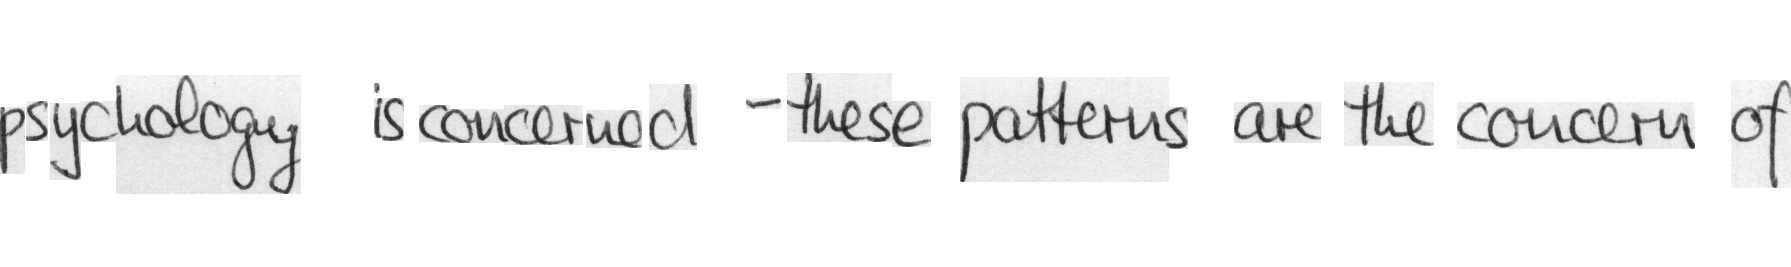 psychology is concerned - these patterns are the concern of